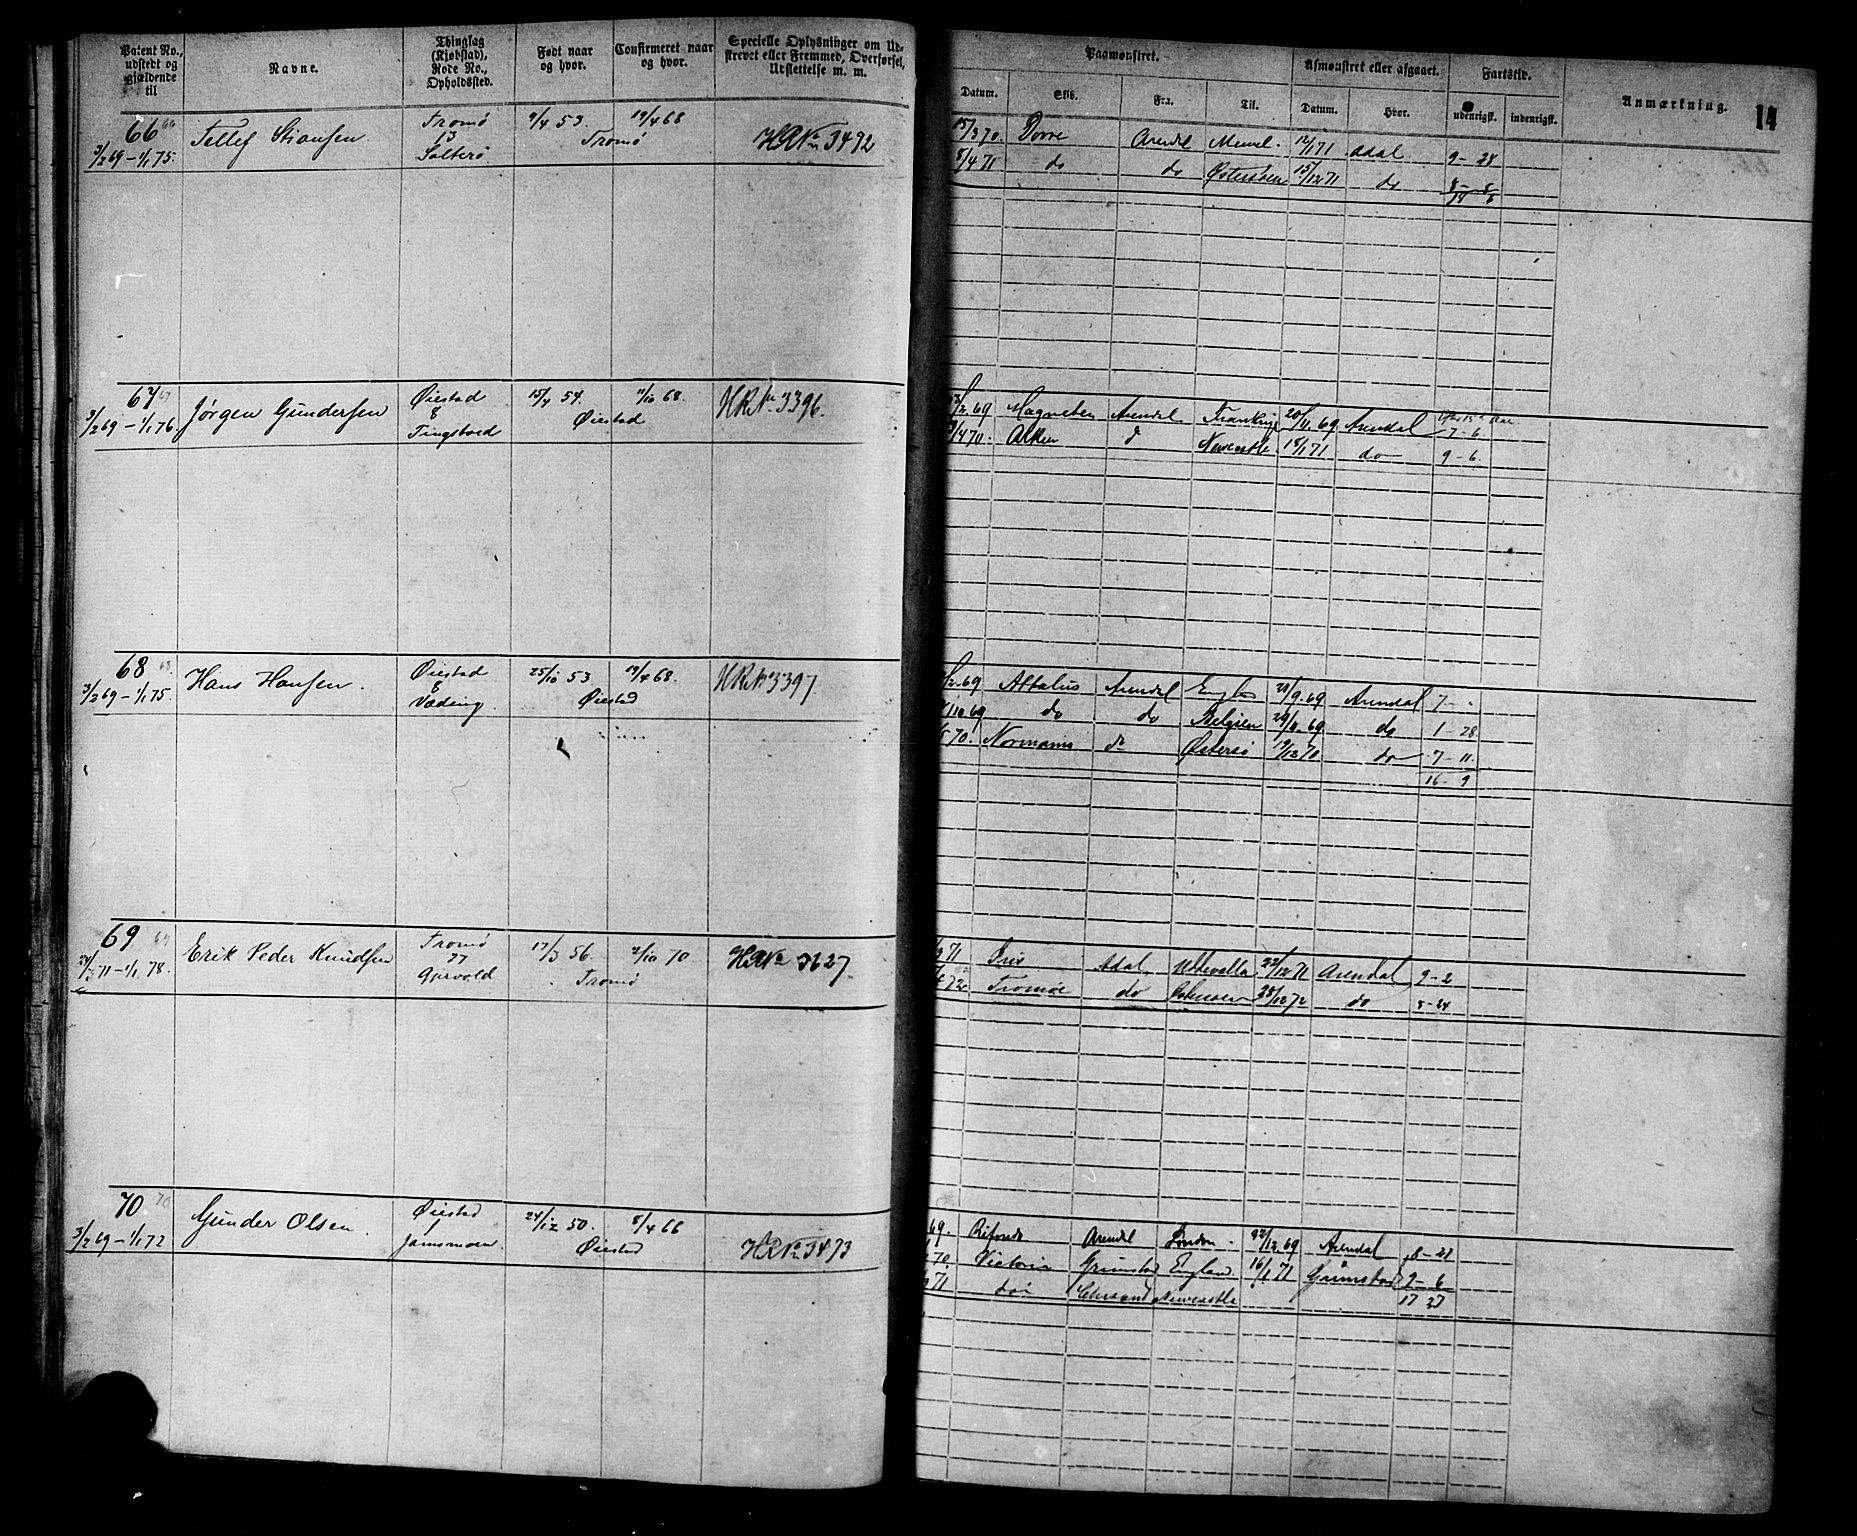 Patent No., udstedt og gjældende til
Navne.
Thinglag (Kjøbstad), Rode No., Opholdssted.
Født naar og hvor.
Confirmeret naar og hvor.
Specielle Oplysninger om Udskrevet eller Fremmed, Overførsel, Udslettelse m. m.
Paamønstret.
Datum. Skib. Fra. Til.
Afmønstret eller afgaaet.
Datum. Hvor.
Fartstid.
udenrigsk. indenrigsk.
Anmærkning.
14
66 66 Tellef Stiansen Tromø 9/4 53. 19/4 68
3/2 69 – 1/1 75. 13 Tromø HR No 3492
Salterø
15/3 70 Dovre Arendal Memel. 12/1 71 Adal 9 - 28
8/4 71 do do Østersøen 15/12 71 do 8 - 8
67 67 Jørgen Gundersen Øiestad 15/4 54. 11/10 68. HR No 3396.
3/2 69 – 1/1 76. 8 Øiestad
Tingstved
/2 69 Magneten Arendal 20/11 69 Arendal 7 - 6
/4 70. Newcastle 18/1 71 do 9 - 6
68 68 Hans Hansen. Øiestad 25/10 53 19/4 68. HR No 3397
3/2 69 – 1/1 75. 8 Øiestad
Væding.
/2 69 Attalus Arendal 9. 69 Arendal 7 -
/10 69 do do Belgien 29/11 69 do 1 - 28
70. Østersø 19/12 70 do 7 - 11
16 - 9
69 69 Erik Peder Knudsen Tromø 17/3 56. 2/10 70 HR No 3627.
24/3 71 – 1/1 78. 27 Tromø
Gjervold
71 Iris Adal Uddevalla 22/12 71 Arendal 9 - 2
72 Tromøe do 28/12 72 do 8 - 24
70 70 Gunder Olsen Øiestad 24/12 50. 8/4 66
3/2 69 – 1/1 72 1 Øiestad HR No 3473
69. Arendal London. 22/12 69 Arendal 8 - 21
70. Victoria Grimstad England 16/1 71 Grimstad 9 - 6
71 do Newcastle 17 27